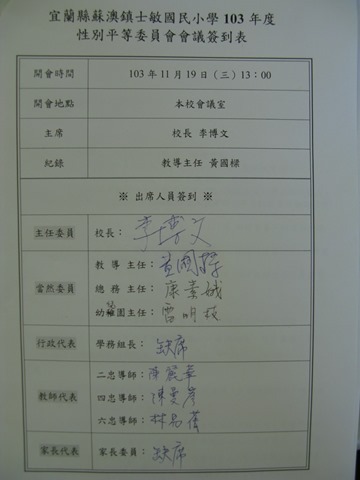 宜蘭縣蘇澳鎮士敏國民小學 103 年度
性別平等委員會會議簽到表
開會時間 103 年 11 月 19 日（三）13：00
開會地點 本校會議室
主席 校長 李博文
紀錄 教導主任 黃國樑
※ 出席人員簽到 ※
主任委員 校長： 李博文
當然委員 教 導 主任：黃國樑
總 務 主任：康素娥
幼稚園主任：雷明枝
行政代表 學務組長： 缺席
教師代表 二忠導師：
四忠導師：陳
六忠導師：林
家長代表 家長委員： 缺席